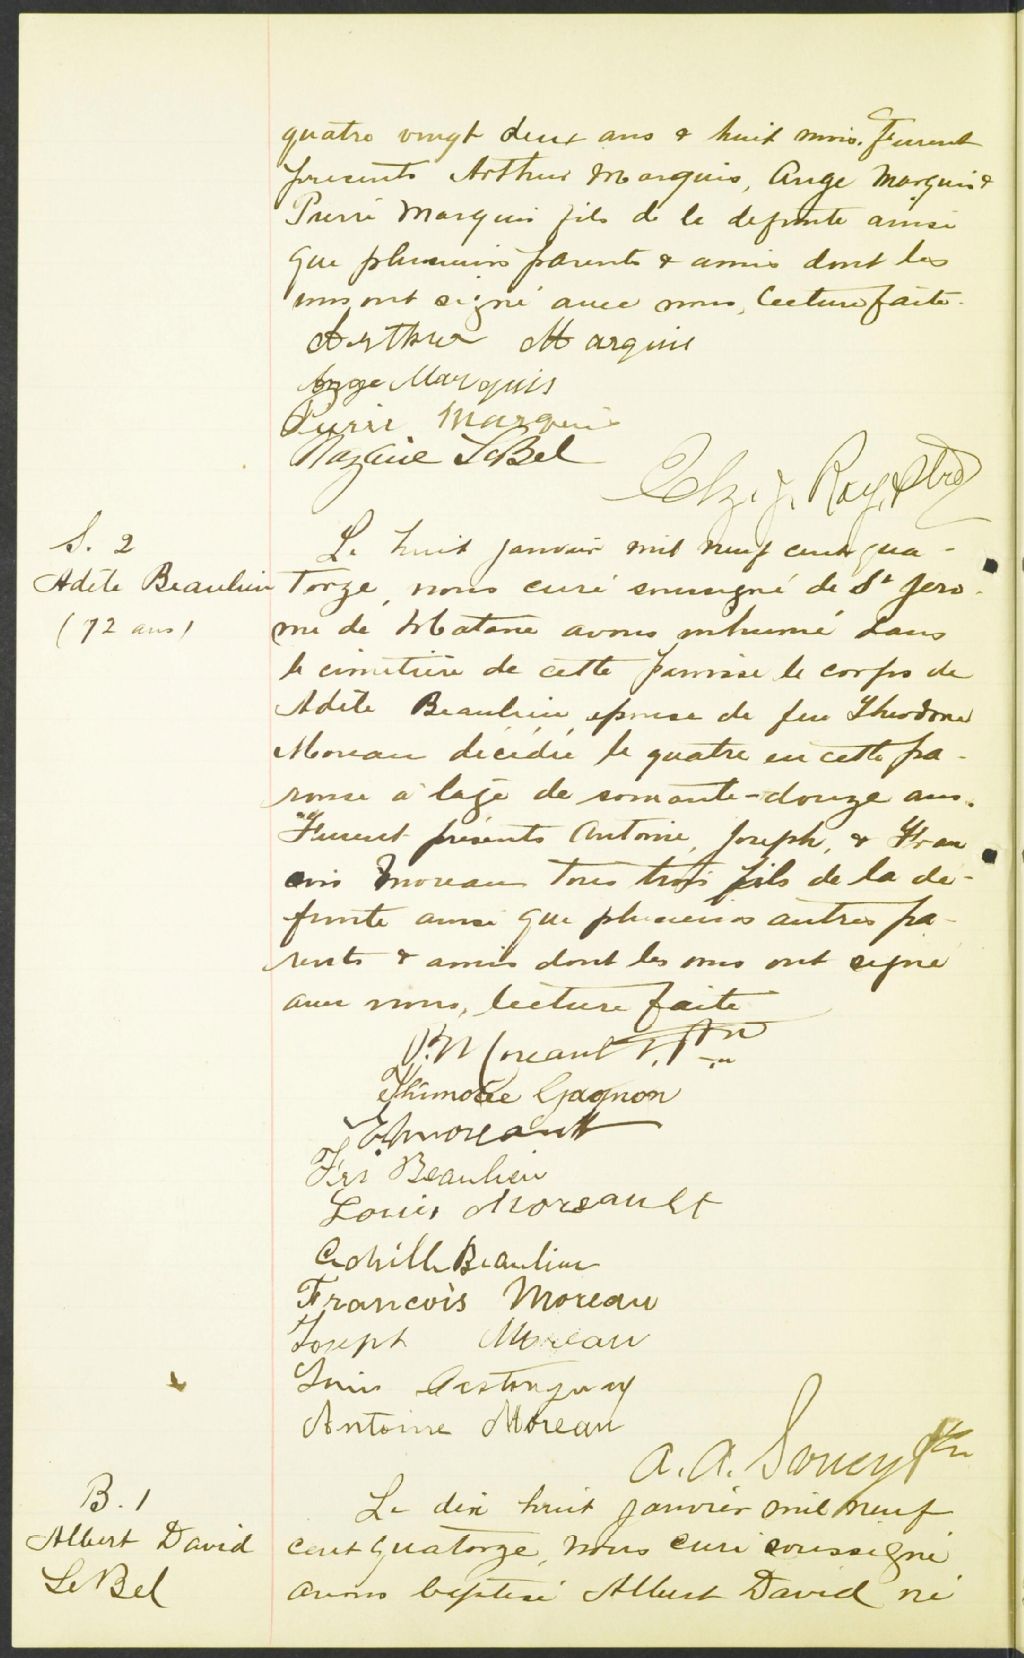 quatre vingt deux ans & huit mois. Furent
présents Arthur Marquis, Ange Marquis &
Pierre Marquis fils de la defunte ainsi
que plusieurs parents & amis dont les
uns ont signé avec nous, lecture faite.
Arthur Marquis
Ange Marquis
Pierre Marquis
Nazaire LeBel
Elz. J. Roy, Ptre
S. 2
Adèle Beaulieu
(72 ans)
Le huit janvier mil neuf cent qua-
torze, nous curé soussigné de St Jero-
me de Matane avons inhumé dans
le cimetière de cette paroisse le corps de
Adèle Beaulieu epouse de feu Theodore
Moreau décédée le quatre en cette pa-
roisse à l'age de soixante-douze ans.
Furent présents Antoine, Joseph, & Fran
cois Moreau tous trois fils de la dé-
funte ainsi que plusieurs autres pa-
rents & amis dont les uns ont signé
avec nous, lecture faite
Moreault Ptre
Thimotée Gagnon
E Moreault
Frs Beaulieu
Louis Moreault
Achille Beaulieu
Francois Moreau
Joseph Moreau
Louis Castonguay
Antoine Moreau
A. A. Soucy Ptre
B. 1
Albert David
LeBel
Le dix huit janvier mil neuf
cent quatorze, nous curé soussigné
avons baptisé Albert David né